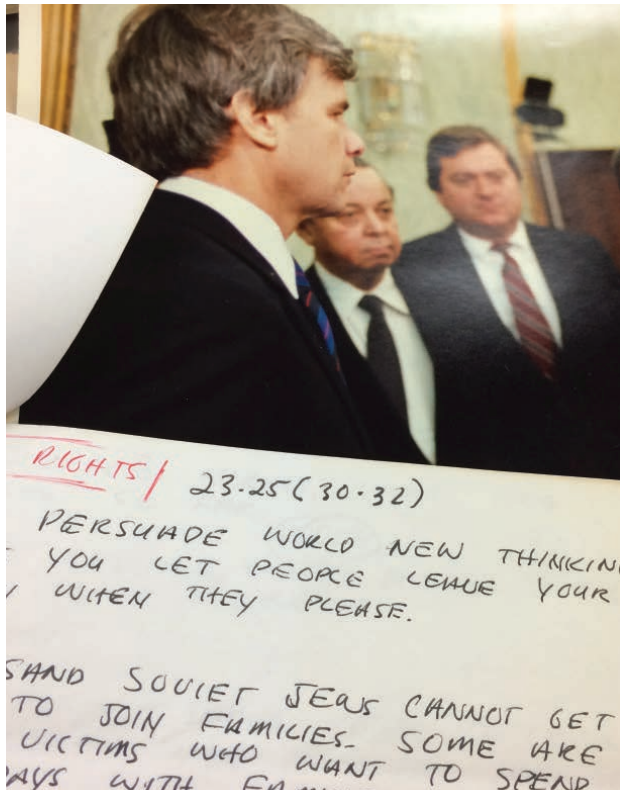 RIGHTS/ 23-25 (30-32)
PERSUADE WORLD NEW THINKIN
YOU LET PEOPLE LEAVE YOUR
WHEN THEY PLEASE.
SAND SOVIET JEWS CANNOT GET
TO JOIN FAMILIES. SOME ARE
VICTIMS WHO WANT TO SPEND
AYS WITH FAM